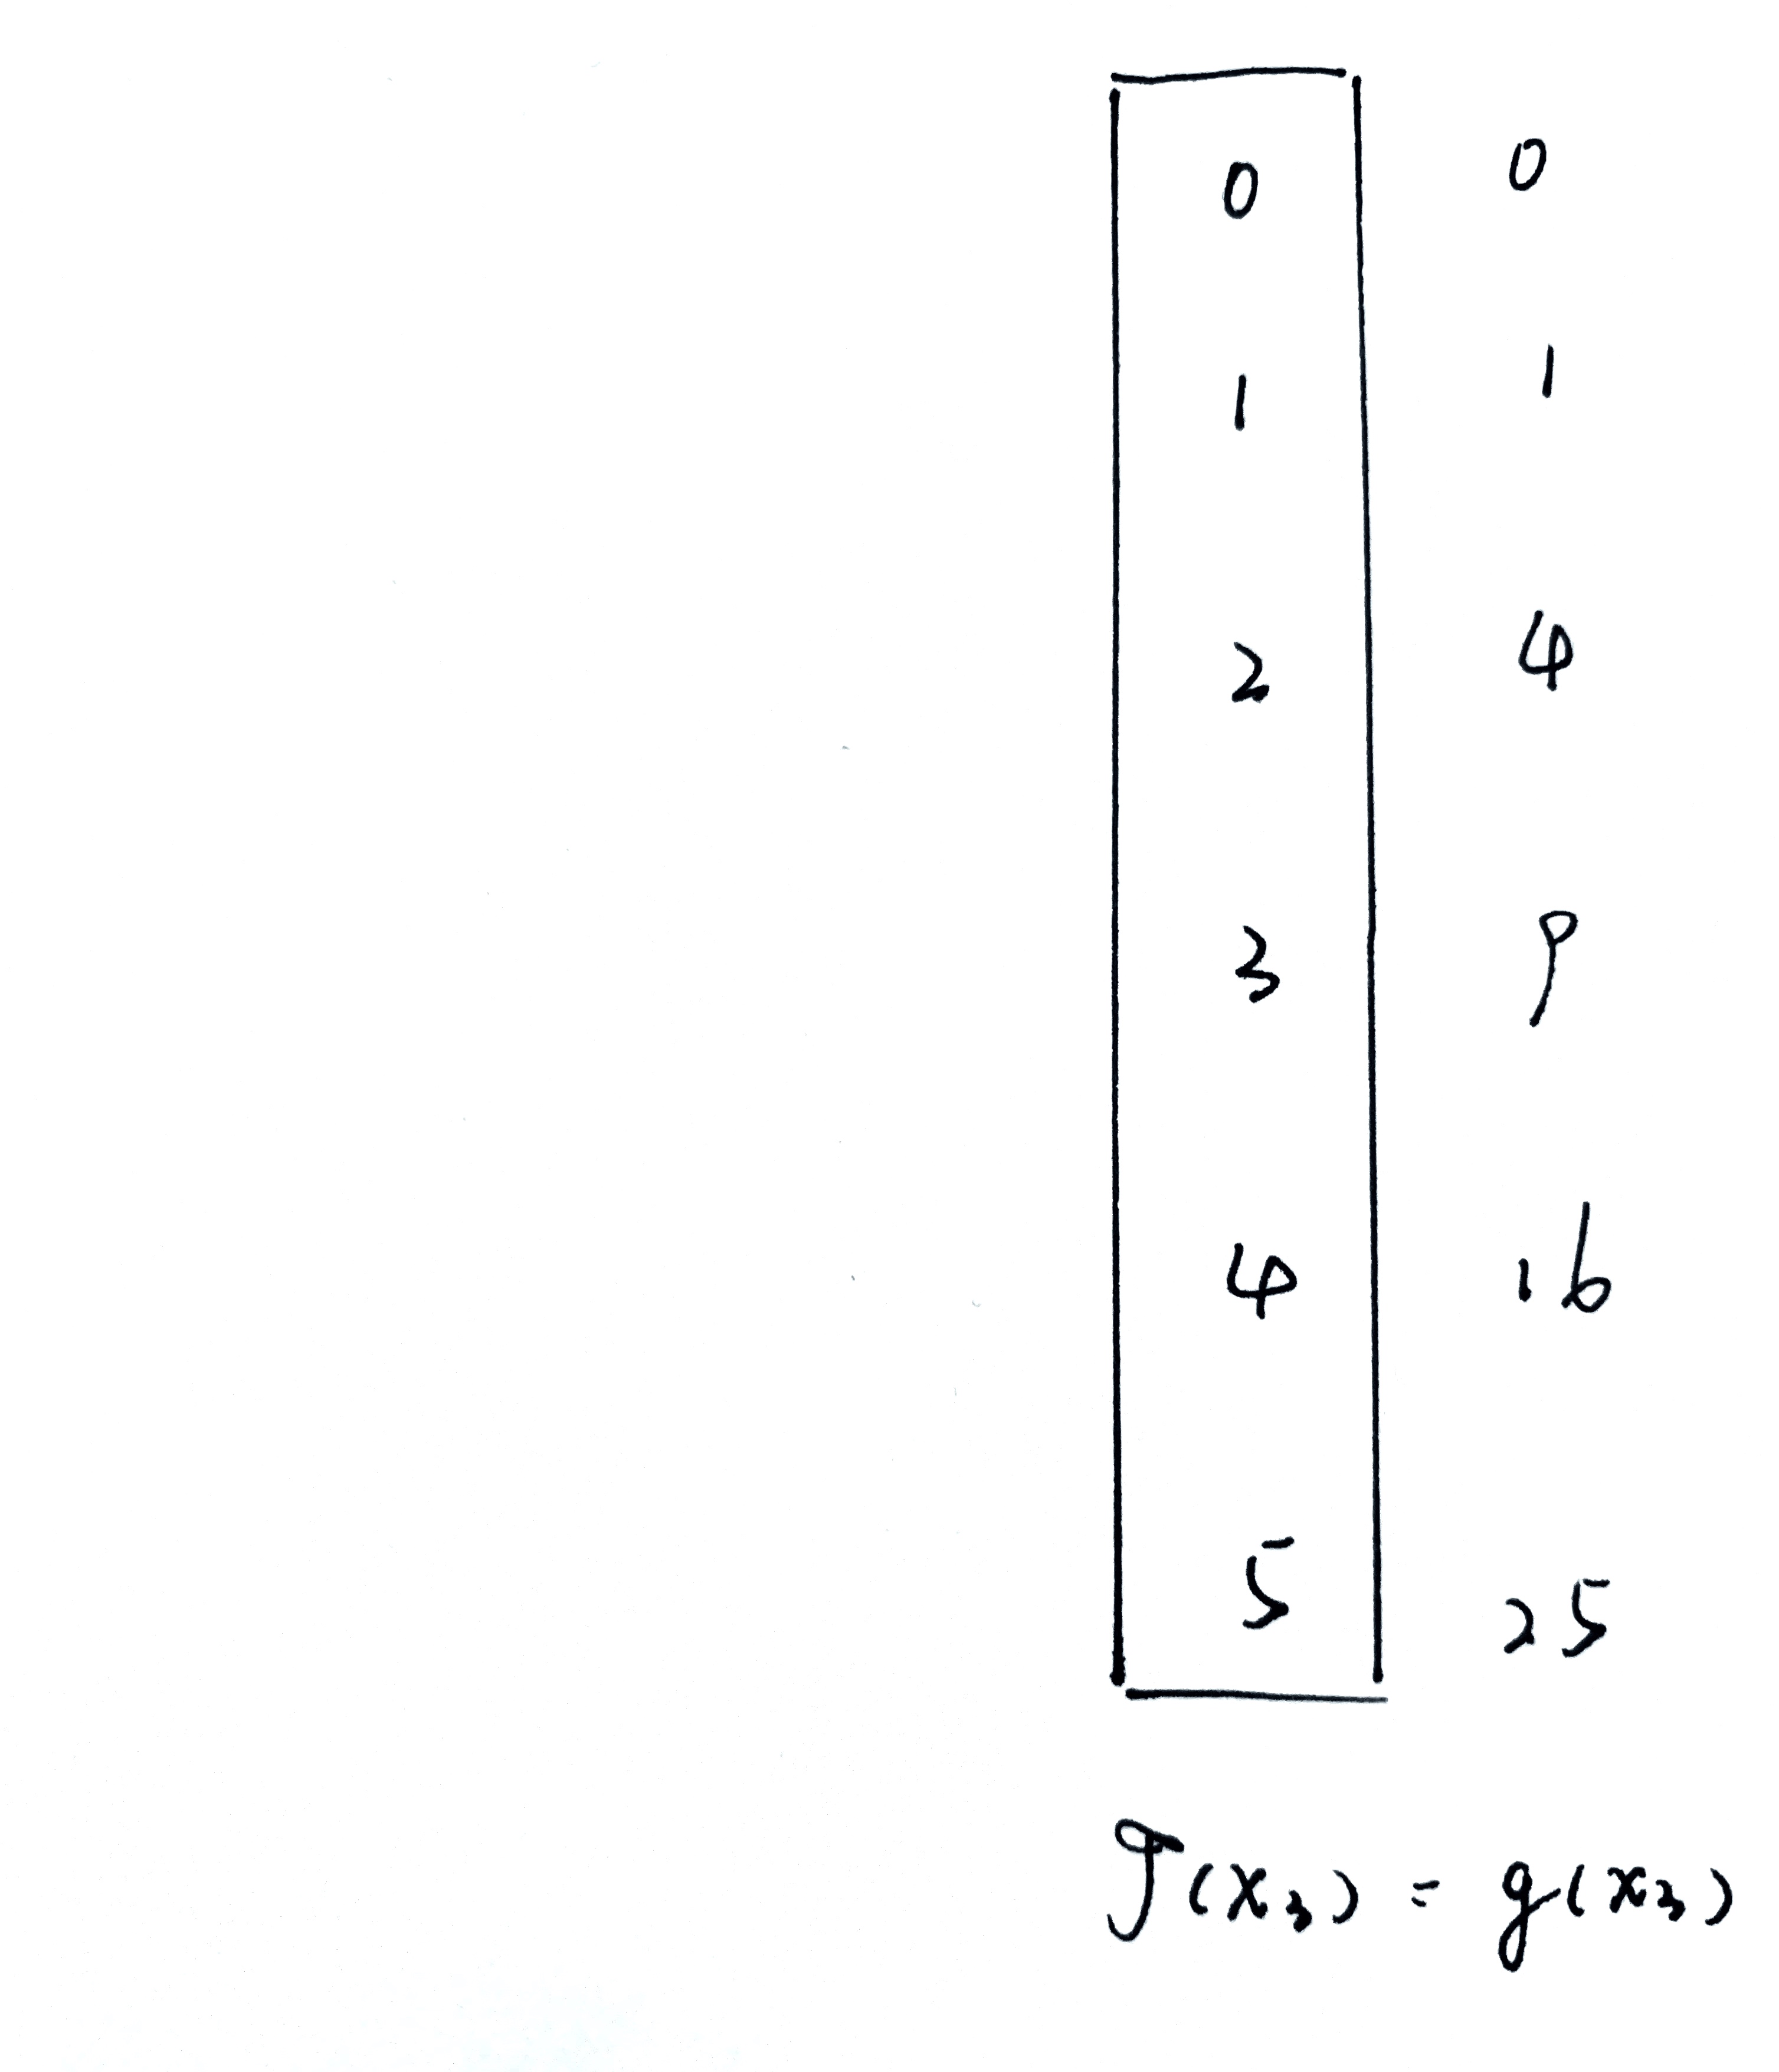 0 0
1 1
2 4
3 9
4 16
5 25
J(x₃) = g(x₃)